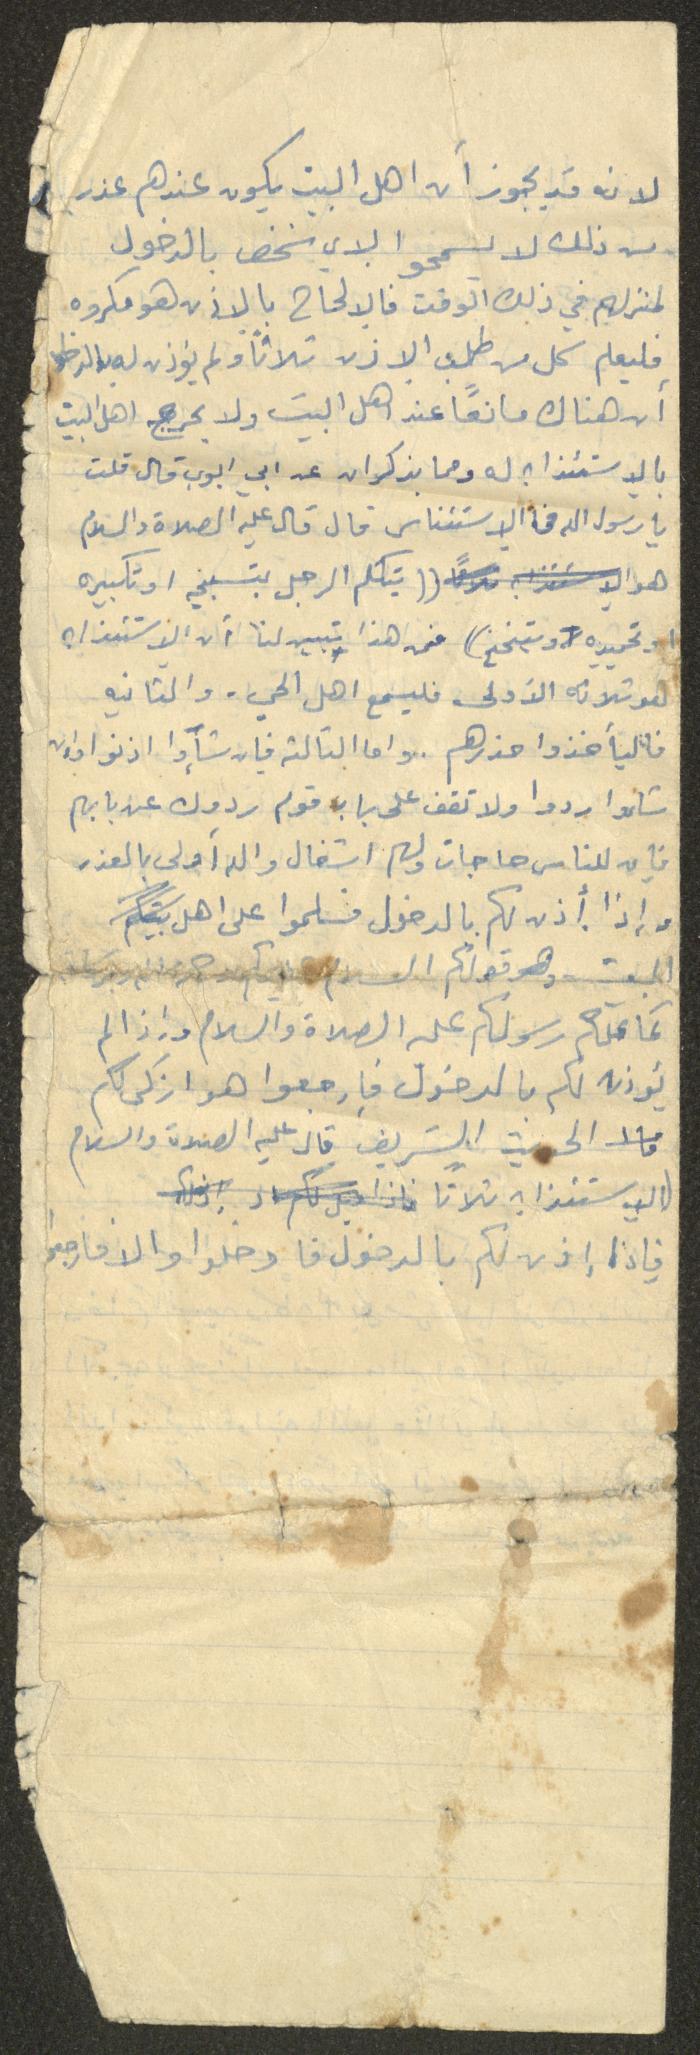 لانه قد يجوز أن اهل البيت يكون عندهم عذر
من ذلك لا يسمحوا لاي شخص بالدخول
لمنزلهم في ذلك الوقت فالإلحاح بالاذن هو مكروه
فليعلم كل من طلب الإذن ثلاثاً ولم يؤذن له بالدخول
أن هناك مانعاً عند اهل البيت ولا يحرج اهل البيت
بالاستئذان له ومما يذكر ان عن ابي ايوب قال قلت
يا رسول الله فما الاستئناس قال قال عليه الصلاة والسلام
هو الاستئذان ثلاثاً (( يتكلم الرجل بتسبيحه او تكبيره
او تحميده او يتنحنح)) فمن هذا يتبين لنا أن الاستئذان
هو ثلاثه الأولى فليسمع اهل الحي . والثانيه
فاليأخذوا حذرهم . واما الثالثه فإن شاؤا اذنوا وان
شاءوا ردوا ولا تقف على باب قوم ردوك عن بابهم
فإن للناس حاجات ولهم اشغال والله أولى بالعذر
وإذا أذن لكم بالدخول فسلموا على اهل بيتكم
البيت وهو قولكم السلام عليكم ورحمة الله وبركاته
كما علمكم رسولكم عليه الصلاة والسلام وإذا لم
يؤذن لكم بالدخول فإرجعوا هو ازكى لكم
الحديث الشريف قال عليه الصلاة والسلام
(الاستئذان ثلاثا فإذا لكم
فإذا إذن لكم بالدخول فادخلوا والا فارجعوا